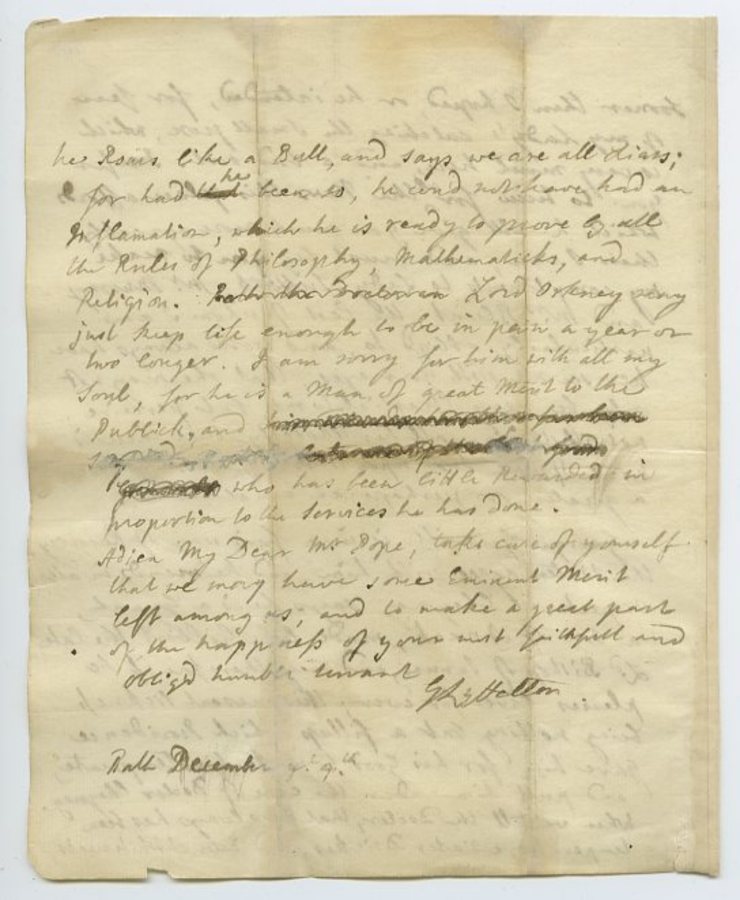 he Roars like a Bull, and says we are all Liars;
for had he been so, he coud not have had an
Inflamation, which he is ready to prove by all
the Rules of Philosophy, Mathematicks, and
Religion. Lord Orkney may
just keep life enough to be in pain a year or
two longer. I am sorry for him with all my
Soul, for he is a Man of great Merit to the
Publick, and
who has been little Rewarded in
proportion to the Services he has done.
Adieu My Dear Mr Pope, take care of yourself
that we may have some Eminent Merit
left among us, and to make a great part
of the happiness of your most faithfull and
obliged humble servant
GLyttelton
Bath December ye 9th